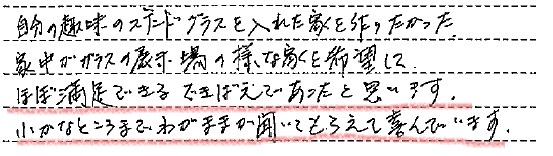 自分の趣味のステンドグラスを入れた家を作りたかった
家中がガラスの展示場の様な家を希望して
ほぼ満足できるできばえであったと思います。
小かなところまでわがままが聞いてもらえて喜んでいます。